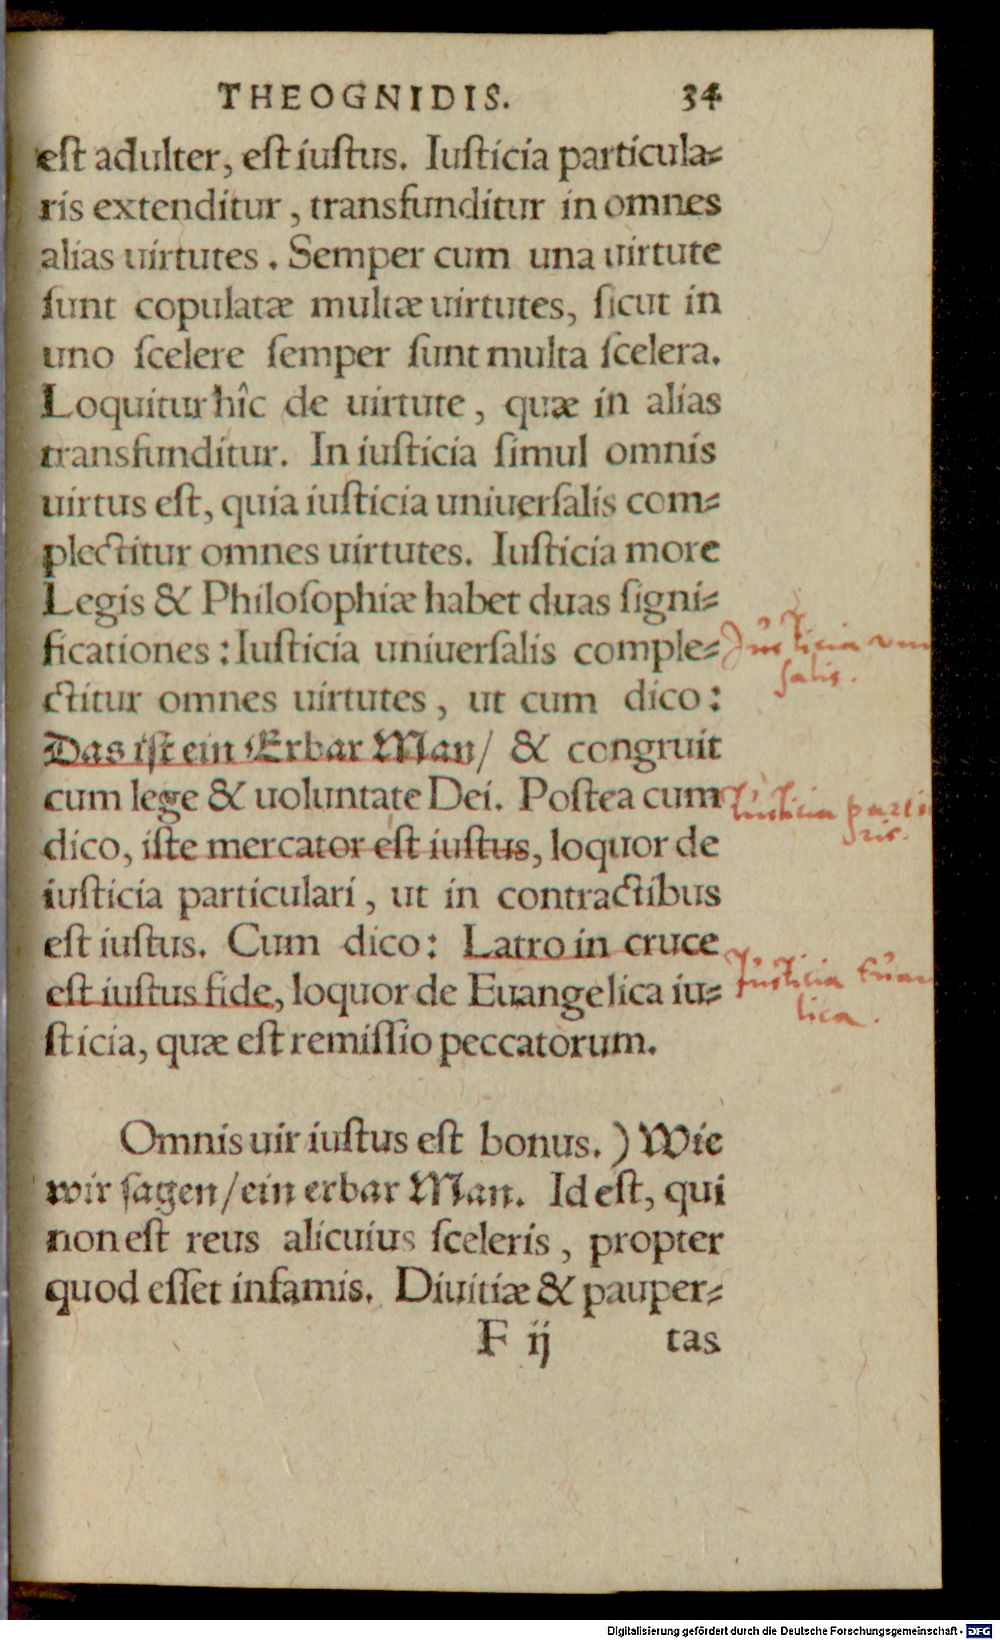 THEOGNIDIS. 34
eſt adulter, eſt iuſtus. Iuſticia particula⸗
ris extenditur, transfunditur in omnes
alias uirtutes. Semper cum una uirtute
ſunt copulatæ multæ uirtutes, ſicut in
uno ſcelere ſemper ſunt multa ſcelera.
Loquitur hîc de uirtute, quæ in alias
transfunditur. In iuſticia ſimul omnis
uirtus eſt, quia iuſticia uniuerſalis com⸗
plectitur omnes uirtutes. Iuſticia more
Legis & Philoſophiæ habet duas ſigni⸗
ficationes: Iuſticia uniuerſalis comple⸗
ctitur omnes uirtutes, ut cum dico:
Das iſt ein Erbar Man/ & congruit
cum lege & uoluntate Dei. Poſtea cum
dico, iſte mercator eſt iuſtus, loquor de
iuſticia particulari, ut in contractibus
eſt iuſtus. Cum dico: Latro in cruce
eſt iuſtus fide, loquor de Euangelica iu⸗
ſticia, quæ eſt remiſſio peccatorum.
Omnis uir iuſtus eſt bonus.) Wie
wir ſagen/ ein erbar Man. Id eſt, qui
non eſt reus alicuius ſceleris, propter
quod eſſet infamis. Diuitiæ & pauper⸗
F ij tas
Iusticia uni
salis.
Iusticia parti
ris.
Iusticia Euan
lica.
Digitalisierung gefördert durch die Deutsche Forschungsgemeinschaft - DFG